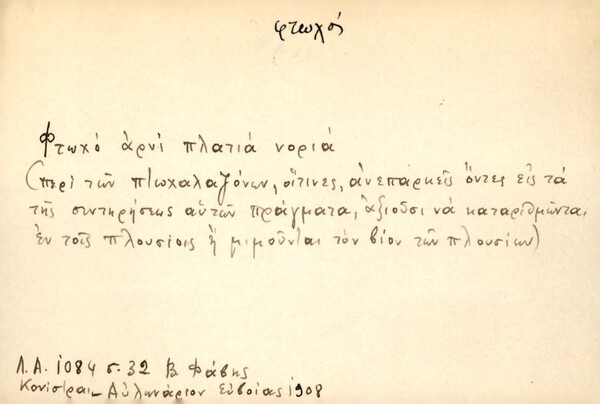 φτωχός
Φτωχό ἀρνὶ πλατιά νοριά
(περὶ τῶν πτωχαλαζόνων, οἵτινες, ἀνεπαρκεῖς ὄντες εἰς τά
τῆς συντηρήσεως αὑτῶν πράγματα, ἀξιοῦσι νά καταριθμῶνται
ἐν τοῖς πλουσίοις ἢ μιμοῦνται τὸν βίον τῶν πλουσίων)
Λ.Α. 1084 σ. 32 Β. Φάβης
Κονίστραι - Αὐλωνάριον Εὐβοίας 1908